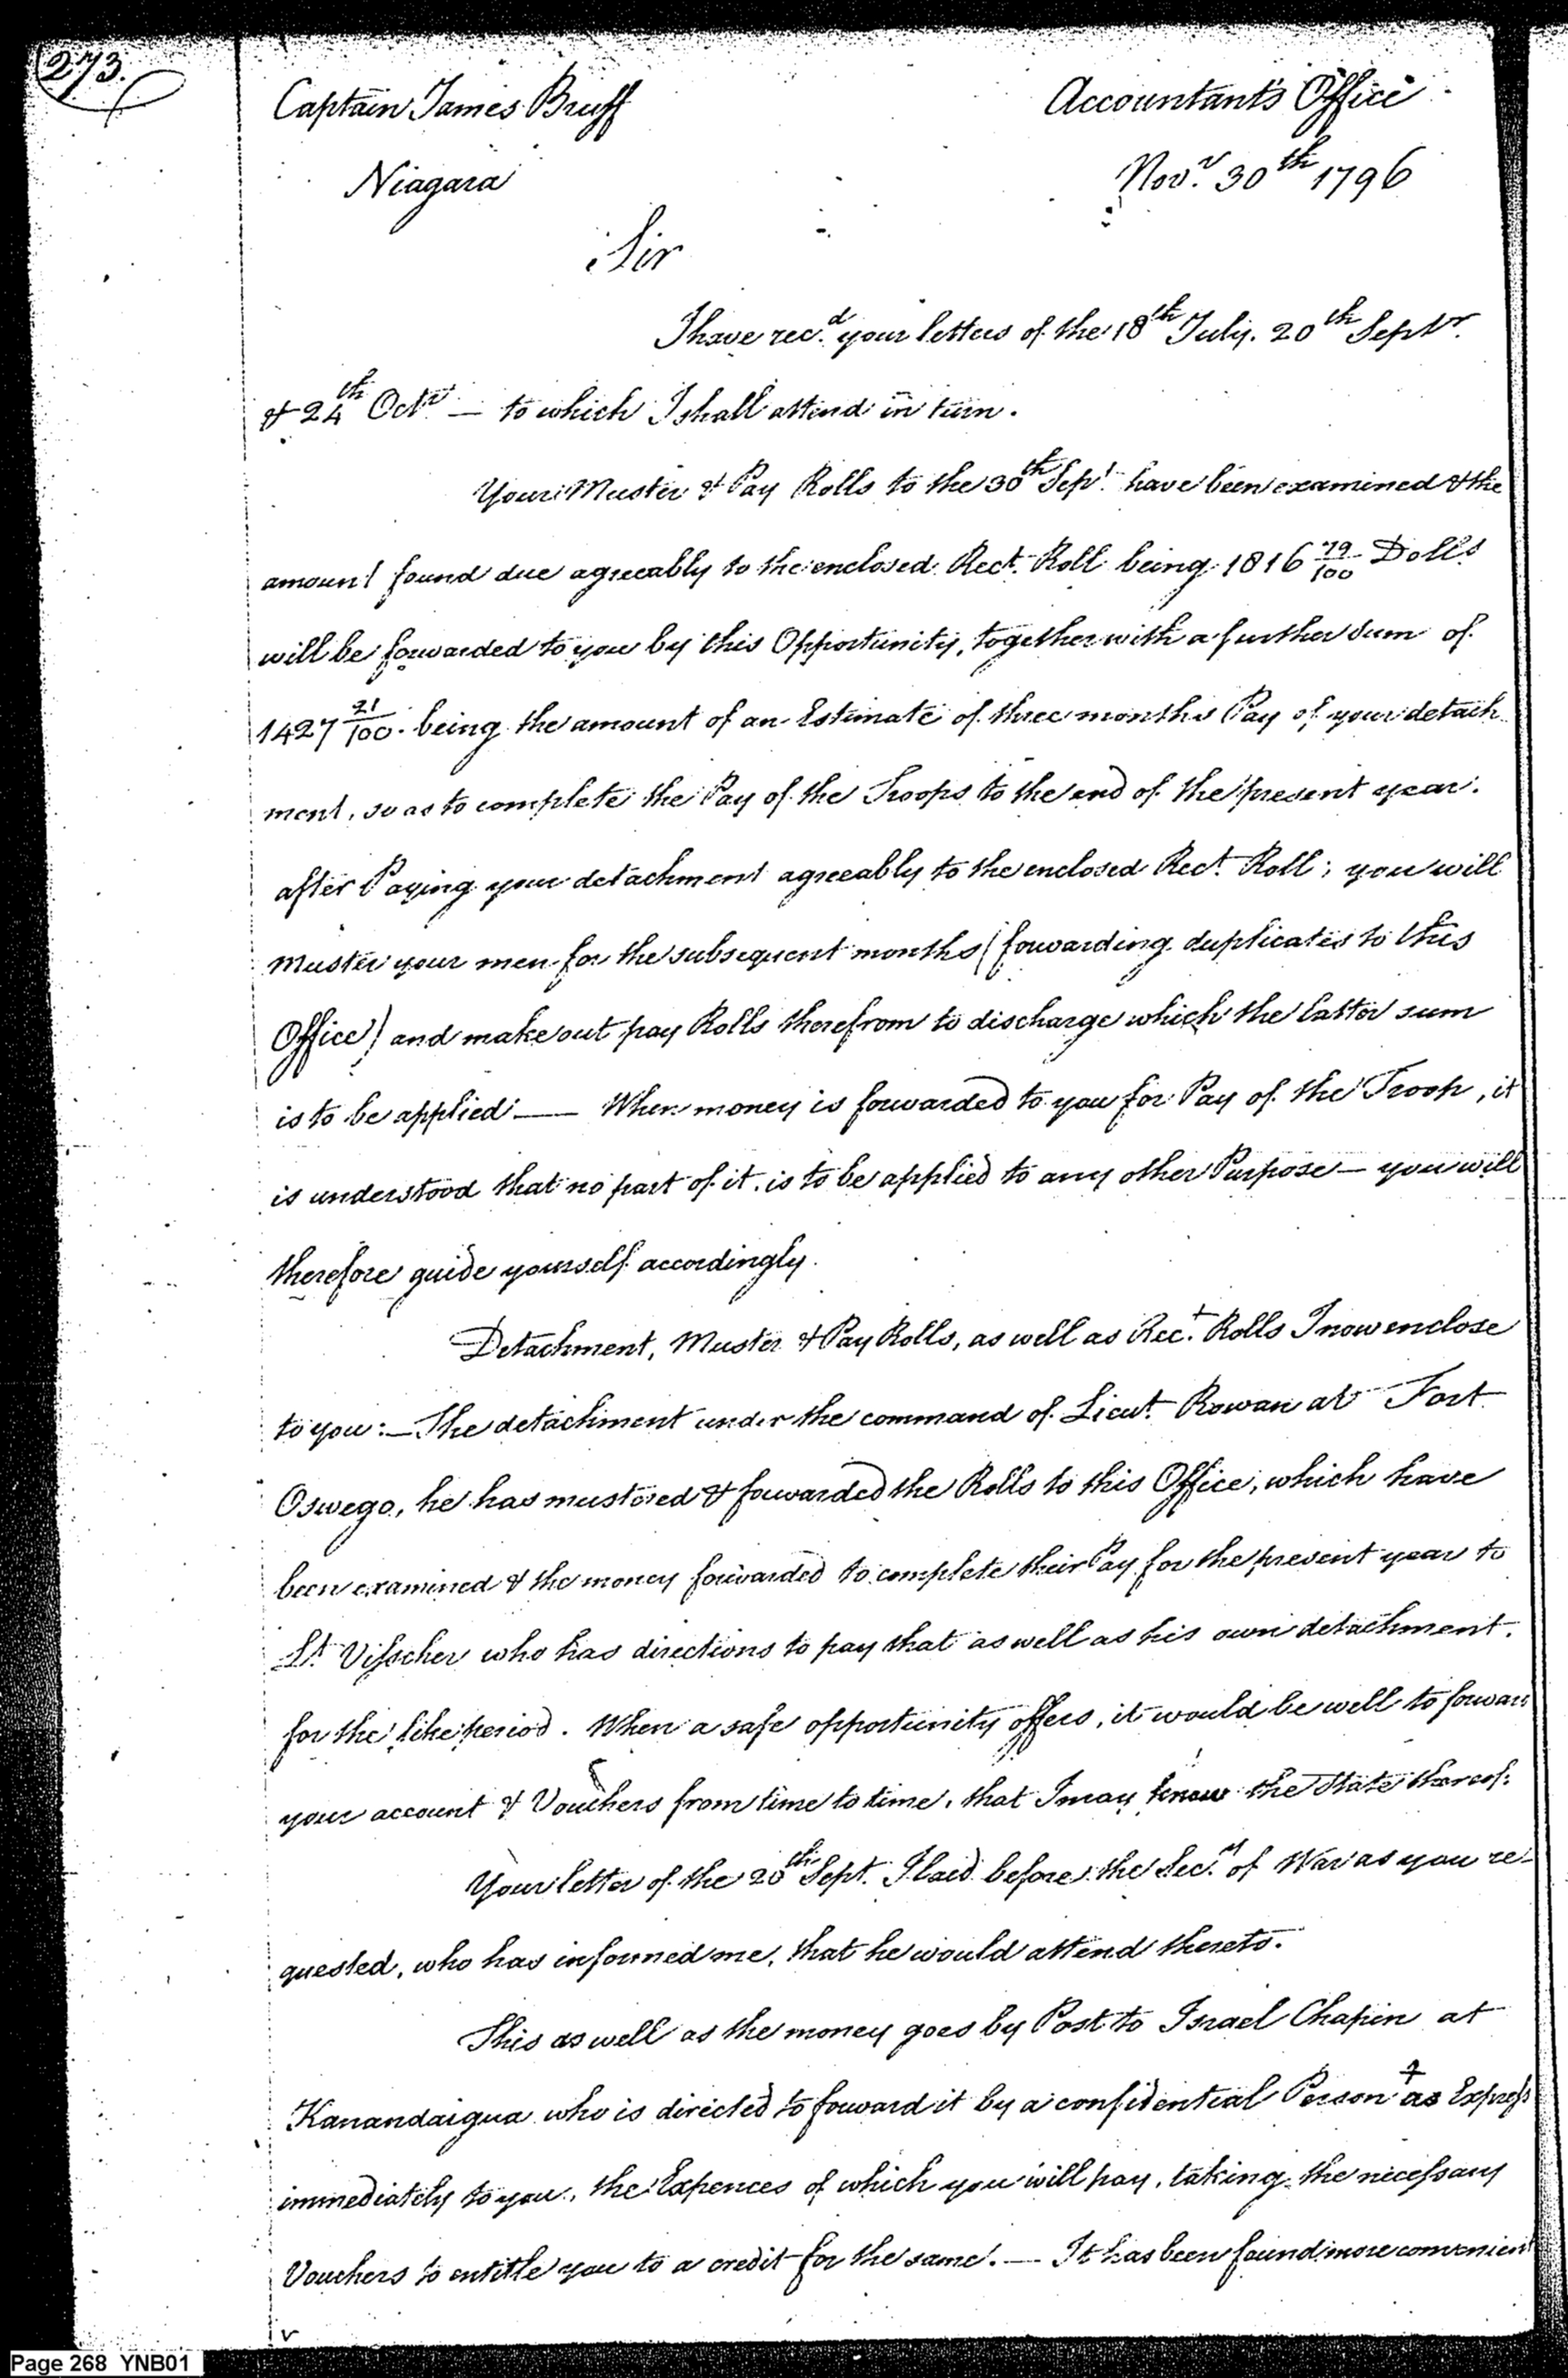 273.
Captain James Bruff
Accountants Office
Niagara
Novr. 30th 1796
Sir
I have recd. your letters of the 18th July. 20th Septr.
& 24th Octr — to which I shall attend in turn.
Your Muster & Pay Rolls to the 30th Sept. have been examined & the
amount found due agreeably to the enclosed Rect. Roll being 1816 79/100 Dolls
will be forwarded to you by this Opportunity, together with a further Sum of
1427 21/100. being the amount of an Estimate of three months Pay of your detach
ment, so as to complete the Pay of the Troops to the end of the present year.
after Paying your detachment agreeably to the enclosed Rect. Roll; you will
muster your men for the subsequent months (forwarding duplicates to this
Office) and make out pay Rolls therefrom to discharge which the latter sum
is to be applied — When money is forwarded to you for Pay of the Troop, it
is understood that no part of it is to be applied to any other Purpose — you will
therefore guide yourself accordingly.
Detachment, Muster & Pay Rolls, as well as Rect. Rolls I now enclose
to you: — The detachment under the command of Lieut. Rowan at Fort
Oswego, he has mustered & forwarded the Rolls to this Office, which have
been examined & the money forwarded to complete their Pay for the present year to
Lt. Visscher who has directions to pay that as well as his own detachment.
for the like period. When a safe opportunity offers, it would be well to forwar
your account & Vouchers from time to time, that I may know the State thereof.
Your letter of the 20th Sept. I laid before the Secy. of War as you re-
quested, who has informed me, that he would attend thereto.
This as well as the money goes by Post to Israel Chapin at
Kanandaigua who is directed to forward it by a confidential Person + as Express
immediately to you, the Expences of which you will pay, taking the necessary
Vouchers to entitle you to a credit for the same. — It has been found more convenient
Page 268 YNB01